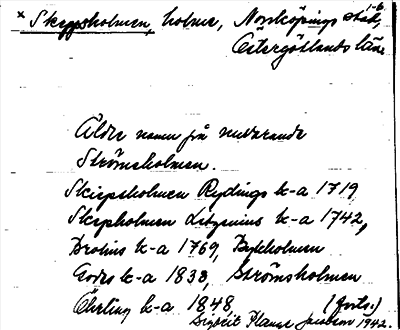 x Skeppsholmen, holme, Norrköpings stad, 1-6.
Östergötlands län.
Äldre namn på nuvarande
Strömsholmen.
Skiepsholmen Rydings k-a 1719,
Skepholmen k-a 1742,
Brolins k-a 1769, Bykholmen
k-a 1838, Strömsholmen
Öhrling k-a 1848, (forts.)
Sigbrit Plænge Jacobson 1942.